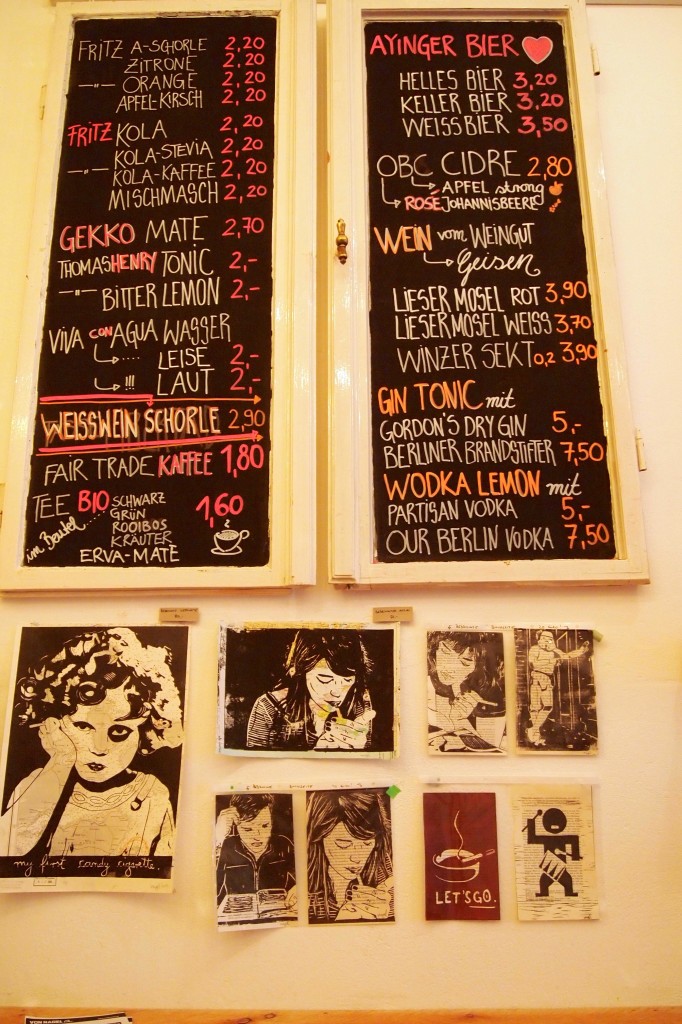 FRITZ A-SCHORLE 2,20
ZITRONE 2,20
-"- ORANGE 2,20
APFEL-KIRSCH 2,20
FRITZ KOLA 2,20
KOLA-STEVIA 2,20
-"- KOLA-KAFFEE 2,20
MISCHMASCH 2,20
GEKKO MATE 2,70
THOMAS HENRY TONIC 2,-
-"- BITTER LEMON 2,-
VIVA CON AGUA WASSER
.... LEISE 2,-
!!! LAUT 2,-
WEISSWEIN SCHORLE 2,90
FAIR TRADE KAFFEE 1,80
TEE BIO SCHWARZ 1,60
im Beutel.... GRÜN
ROOIBOS
KRÄUTER
ERVA-MATE
AYINGER BIER
HELLES BIER 3,20
KELLER BIER 3,20
WEISSBIER 3,50
OBC CIDRE 2,80
APFEL strong
ROSÉ JOHANNISBEERE
WEIN vom WEINGUT
Geisen
LIESER MOSEL ROT 3,90
LIESER MOSEL WEISS 3,70
WINZER SEKT 0,2 3,90
GIN TONIC mit
GORDON'S DRY GIN 5,-
BERLINER BRANDSTIFTER 7,50
WODKA LEMON mit
PARTISAN VODKA 5,-
OUR BERLIN VODKA 7,50
my first candy cigarette.
LET'S GO.